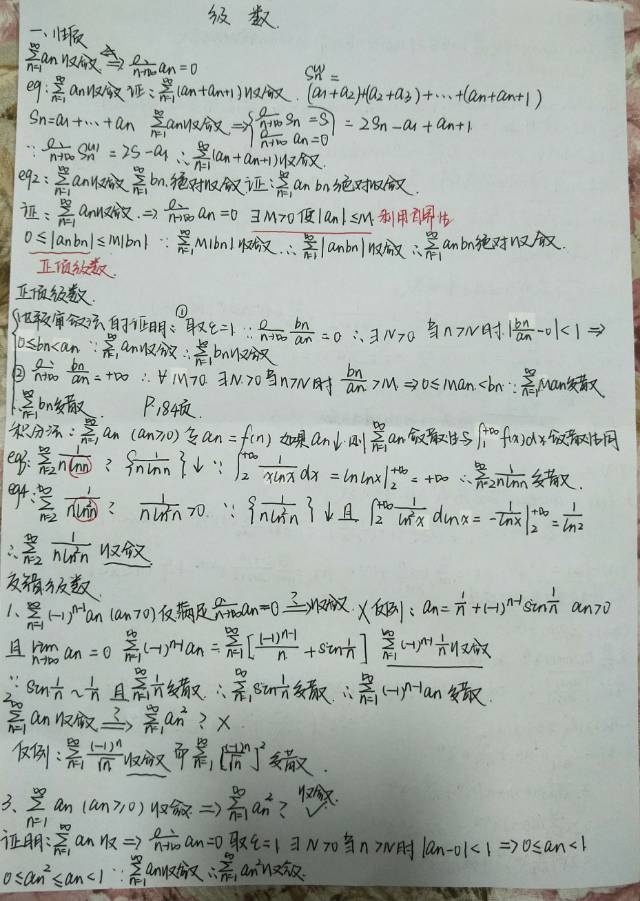 级数
一、性质
∑_{n=1}^{∞} an 收敛 ⇒ lim_{n→∞} an = 0
eg: ∑_{n=1}^{∞} an 收敛 证: ∑_{n=1}^{∞} (an+an+1) 收敛. Sn^{(1)} = (a1+a2)+(a2+a3)+…+(an+an+1)
Sn=a1+…+an ∑_{n=1}^{∞} an 收敛 ⇒ { lim_{n→∞} Sn = S lim_{n→∞} an = 0 = 2Sn-a1+an+1
∵ lim_{n→∞} Sn^{(1)} = 2S-a1 ∴ ∑_{n=1}^{∞} (an+an+1) 收敛.
eg2: ∑_{n=1}^{∞} an 收敛 ∑_{n=1}^{∞} bn 绝对收敛 证: ∑_{n=1}^{∞} an bn 绝对收敛.
证: ∑_{n=1}^{∞} an 收敛 ⇒ lim_{n→∞} an = 0 ∃M>0 使|an|≤M 利用有界性
0≤|anbn|≤M|bn| ∵ ∑_{n=1}^{∞} M|bn| 收敛 ∴ ∑_{n=1}^{∞} |anbn| 收敛 ∴ ∑_{n=1}^{∞} anbn 绝对收敛.
正项级数
正项级数
比较审敛法的证明: ① 取ε=1 ∵ lim_{n→∞} bn/an = 0 ∴ ∃N>0 当n>N时 |bn/an - 0|<1 ⇒
0≤bn<an ∵ ∑_{n=1}^{∞} an 收敛 ∴ ∑_{n=1}^{∞} bn 收敛
② lim_{n→∞} bn/an = +∞ ∴ ∀M>0 ∃N>0 当n>N时 bn/an >M ⇒ 0≤Man<bn ∵ ∑_{n=1}^{∞} Man 发散
∴ ∑_{n=1}^{∞} bn 发散. P184页
积分法: ∑_{n=1}^{∞} an (an≥0) 令an=f(n) 如果an↓ 则 ∑_{n=1}^{∞} an 敛散性与 ∫_1^{+∞} f(x)dx 敛散性同
eg3: ∑_{n=2}^{∞} 1/(n lnn) ? {1/(n lnn)}↓ ∵ ∫_2^{+∞} 1/(xlnx) dx = lnlnx|_2^{+∞} = +∞ ∴ ∑_{n=2}^{∞} 1/(nlnn) 发散.
eg4: ∑_{n=2}^{∞} 1/(nln²n) ? 1/(nln²n) >0 ∵ {1/(nln²n)}↓ 且 ∫_2^{+∞} 1/(ln²x) dlnx = -1/lnx|_2^{+∞} = 1/ln2
∴ ∑_{n=2}^{∞} 1/(nln²n) 收敛
交错级数
1、∑_{n=1}^{∞} (-1)^{n-1} an (an>0) 仅满足 lim_{n→∞} an=0 ⇒? 收敛. × 反例: an = 1/n + (-1)^{n-1} sin 1/n an>0
且 lim_{n→∞} an = 0 ∑_{n=1}^{∞} (-1)^{n-1} an = ∑_{n=1}^{∞} [(-1)^{n-1}/n + sin 1/n] ∑_{n=1}^{∞} (-1)^{n-1} 1/n 收敛
∵ sin 1/n ~ 1/n 且 ∑_{n=1}^{∞} 1/n 发散 ∴ ∑_{n=1}^{∞} sin 1/n 发散 ∴ ∑_{n=1}^{∞} (-1)^{n-1} an 发散.
2、∑_{n=1}^{∞} an 收敛 ⇒? ∑_{n=1}^{∞} an² ? ×
反例: ∑_{n=1}^{∞} (-1)^n/√n 收敛 而 ∑_{n=1}^{∞} [(-1)^n/√n]² 发散.
3、∑_{n=1}^{∞} an (an≥0) 收敛 ⇒ ∑_{n=1}^{∞} an² ? 收敛 ✓
证明: ∑_{n=1}^{∞} an 收 ⇒ lim_{n→∞} an=0 取ε=1 ∃N>0 当n>N时 |an-0|<1 ⇒ 0≤an<1
0≤an²≤an<1 ∵ ∑_{n=1}^{∞} an 收敛 ∴ ∑_{n=1}^{∞} an² 收敛.